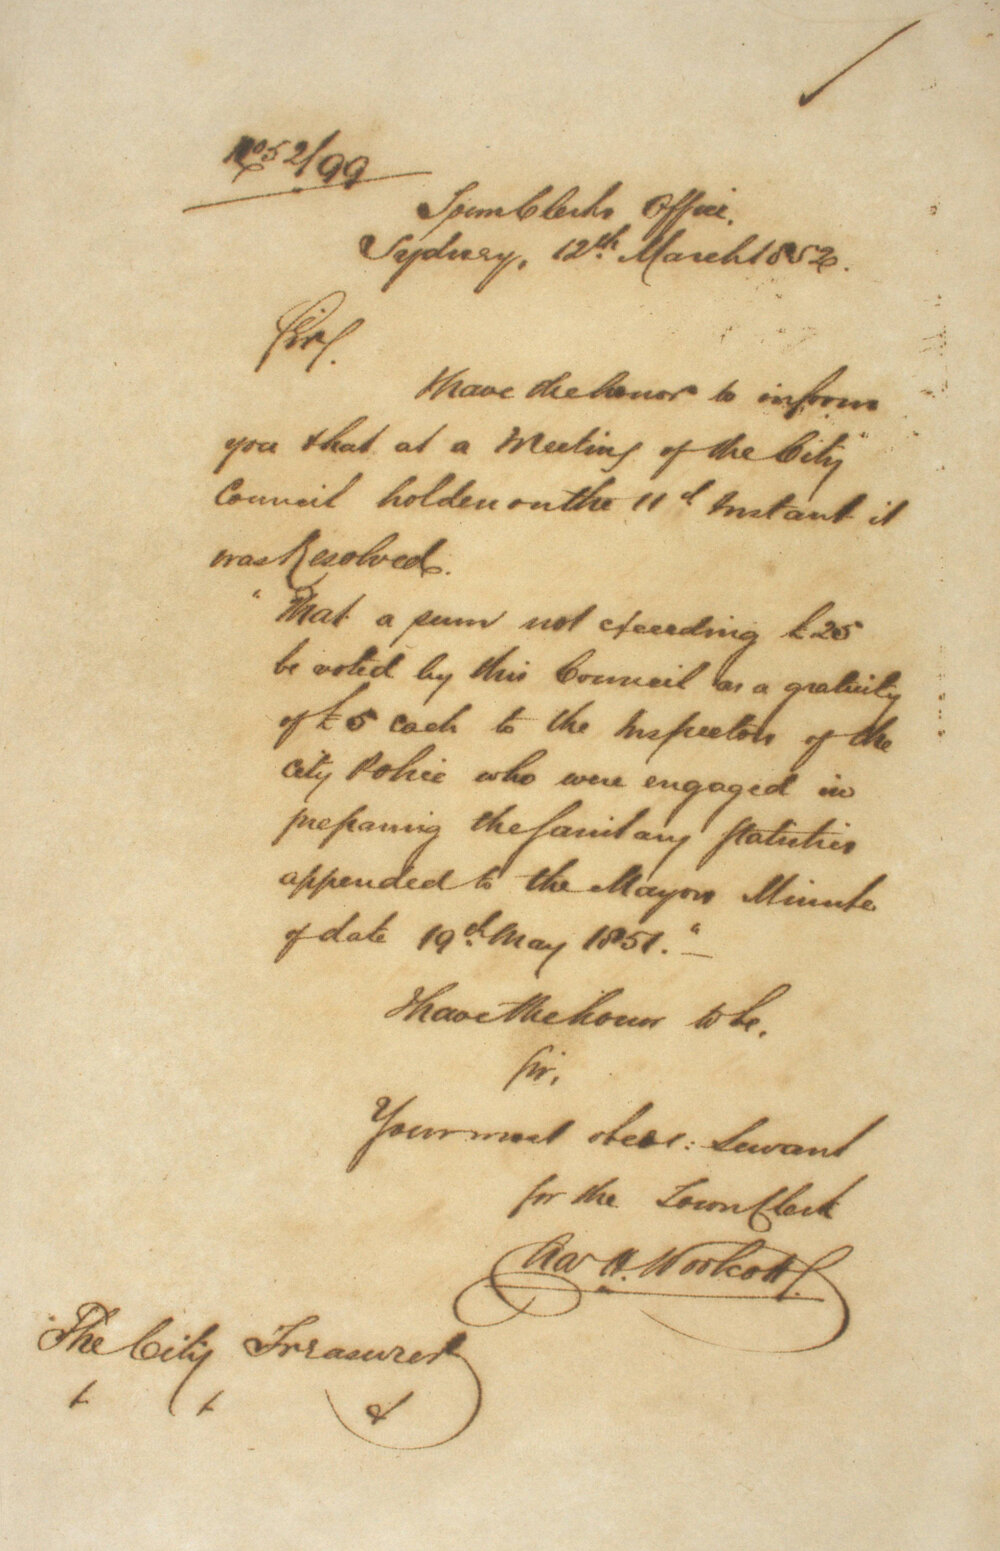 No 52/99
Town Clerks Office.
Sydney, 12th March 1852.
Sir,
I have the honor to inform
you that at a Meeting of the City
Council holden on the 11th Instant it
was Resolved.
"That a sum not exceeding £25
be voted by this Council as a gratuity
of £5 each to the Inspectors of the
City Police who were engaged in
preparing the Sanitary Statistics
appended to the Mayors Minute
of date 19th May 1851."
I have the honor to be,
Sir,
Your most obedt: Servant
for the Town Clerk
Chas H. Woolcott
The City Treasurer